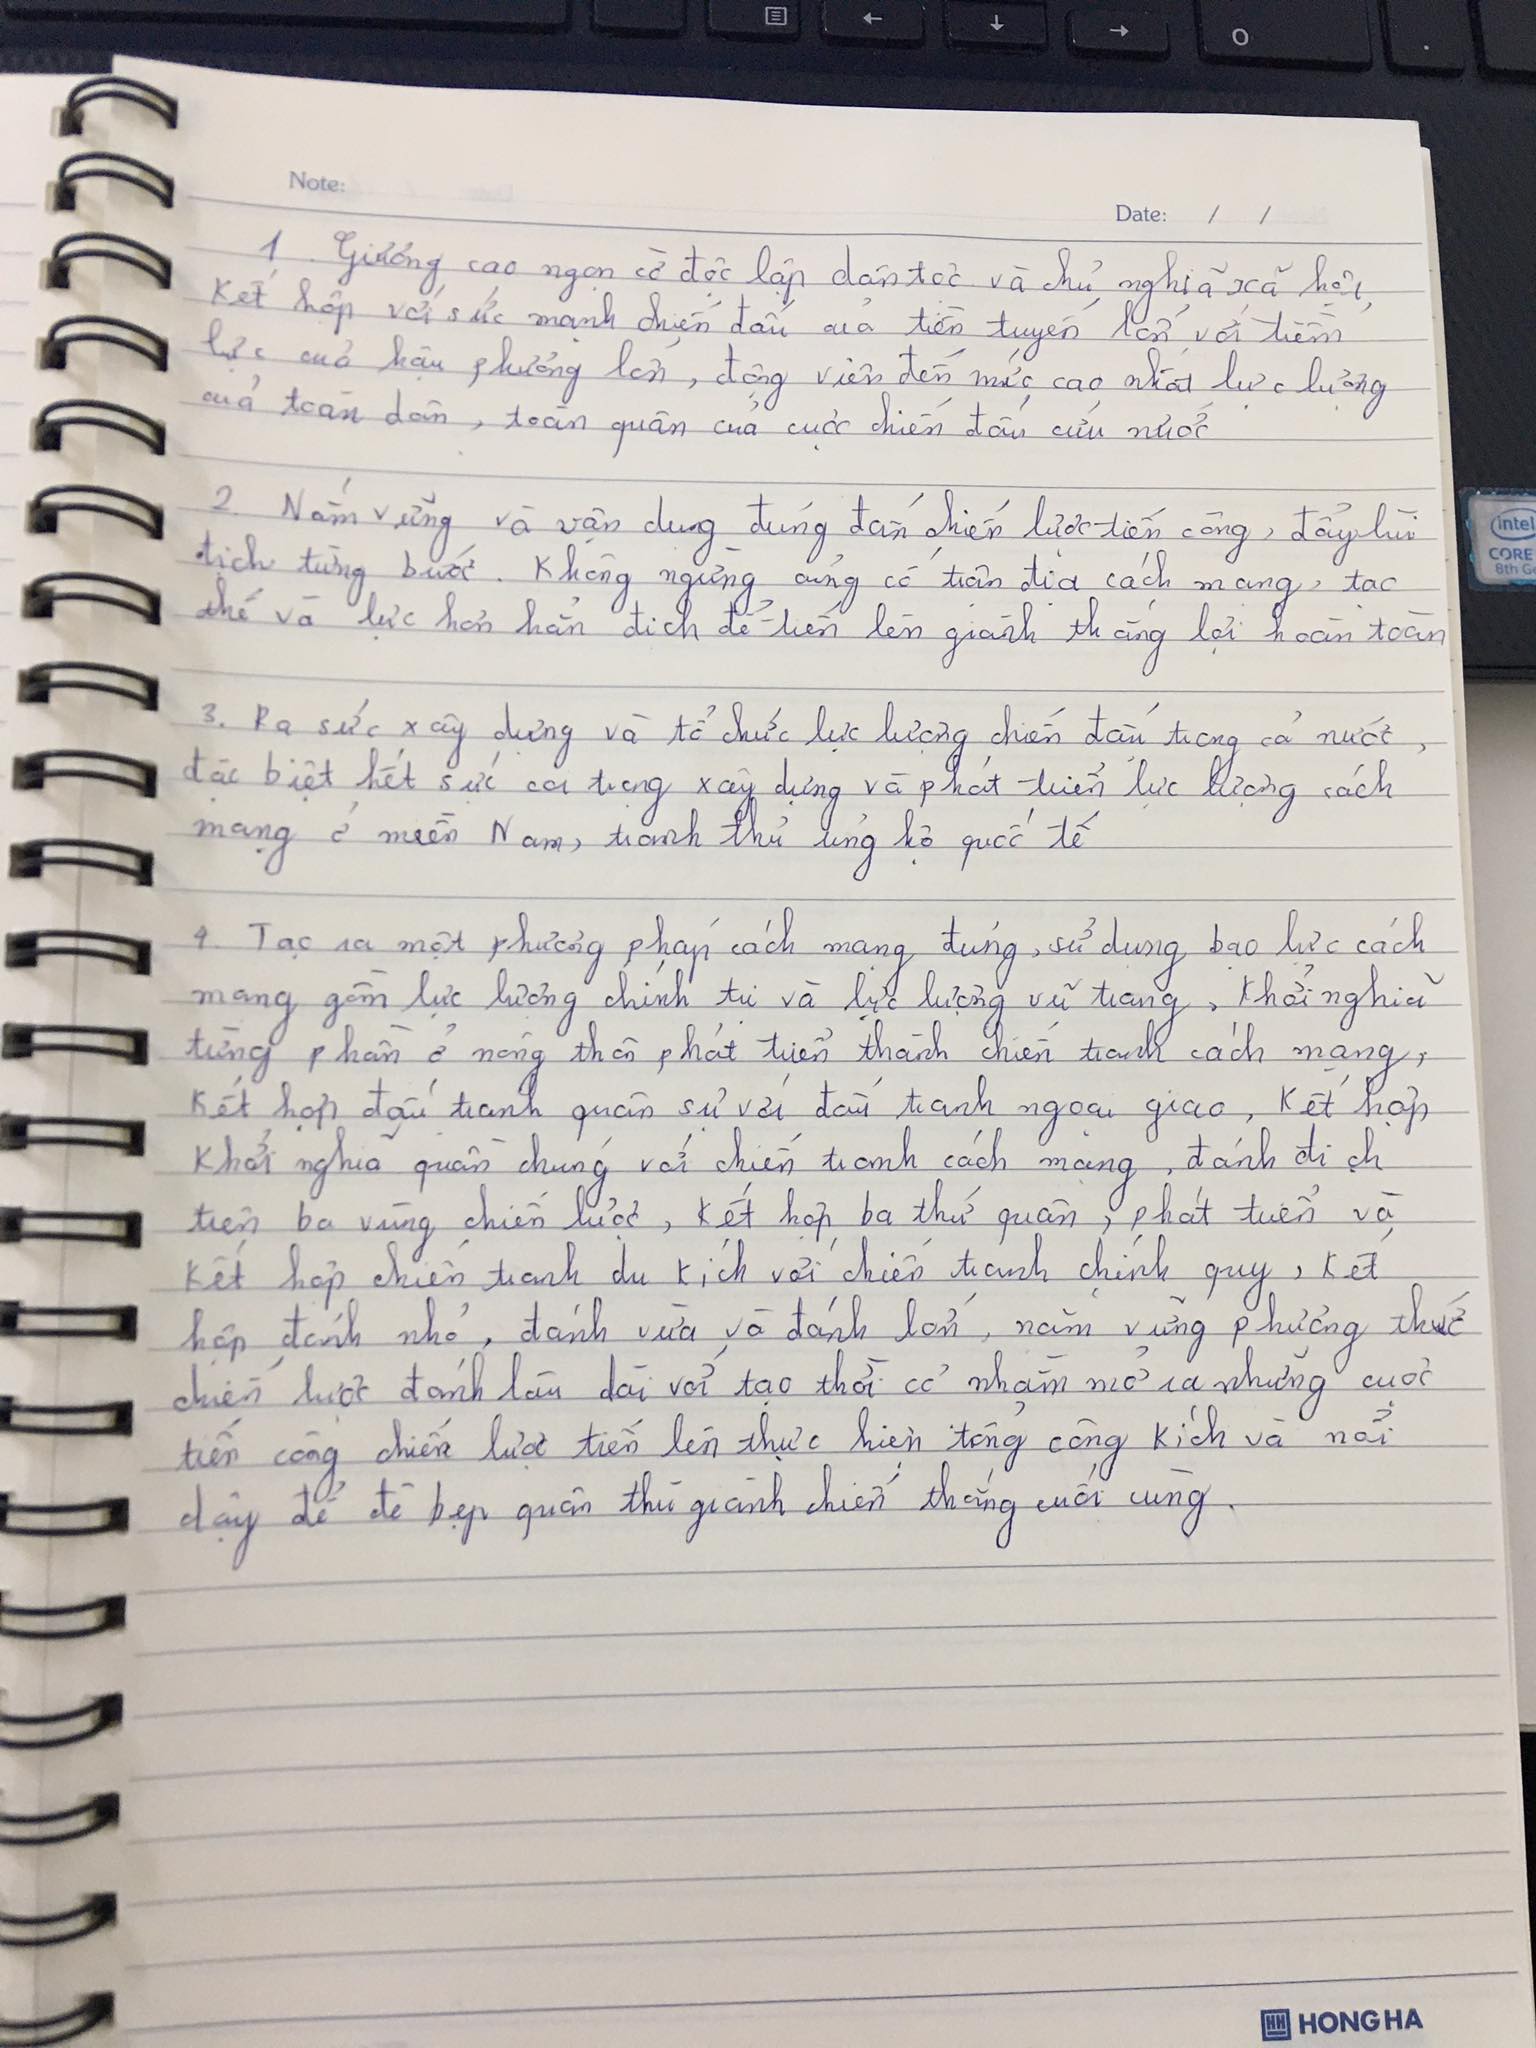 Note:
Date: / /
1. Giương cao ngọn cờ độc lập dân tộc và chủ nghĩa xã hội,
Kết hợp với sức mạnh chiến đấu của tiền tuyến lớn với tiềm
lực của hậu phương lớn, động viên đến mức cao nhất lực lượng
của toàn dân, toàn quân của cuộc chiến đấu cứu nước
2. Nắm vững và vận dụng đúng đắn chiến lược tiến công, đẩy lùi
địch từng bước. Không ngừng củng cố trận địa cách mạng, tạo
thế và lực hơn hẳn địch để tiến lên giành thắng lợi hoàn toàn
3. Ra sức xây dựng và tổ chức lực lượng chiến đấu trong cả nước,
đặc biệt hết sức coi trọng xây dựng và phát triển lực lượng cách
mạng ở miền Nam, tranh thủ ủng hộ quốc tế
4. Tạo ra một phương pháp cách mạng đúng, sử dụng bạo lực cách
mạng gồm lực lượng chính trị và lực lượng vũ trang, Khởi nghĩa
từng phần ở nông thôn phát triển thành chiến tranh cách mạng,
Kết hợp đấu tranh quân sự với đấu tranh ngoại giao, Kết hợp
Khởi nghĩa quần chúng với chiến tranh cách mạng, đánh địch
trên ba vùng chiến lược, Kết hợp ba thứ quân, phát triển và
Kết hợp chiến tranh du Kích với chiến tranh chính quy, Kết
hợp đánh nhỏ, đánh vừa và đánh lớn, nắm vững phương thức
chiến lược đánh lâu dài với tạo thời cơ nhằm mở ra những cuộc
tiến công chiến lược tiến lên thực hiện tổng công Kích và nổi
dậy để đè bẹp quân thù giành chiến thắng cuối cùng.
HONG HA
intel
CORE
8th Ge